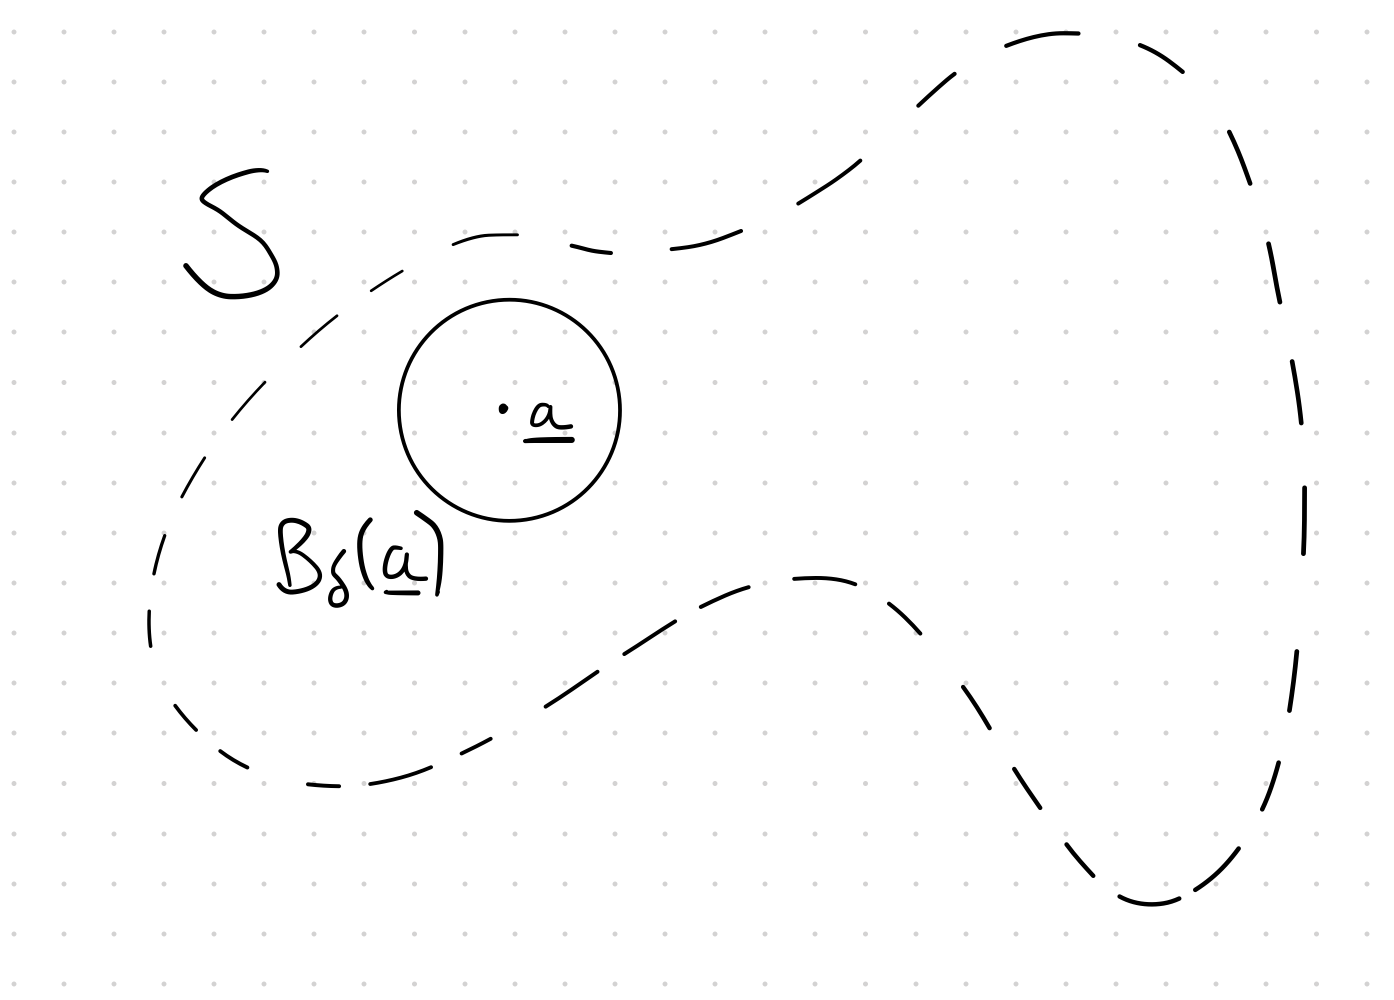 S
a
B_δ(a)